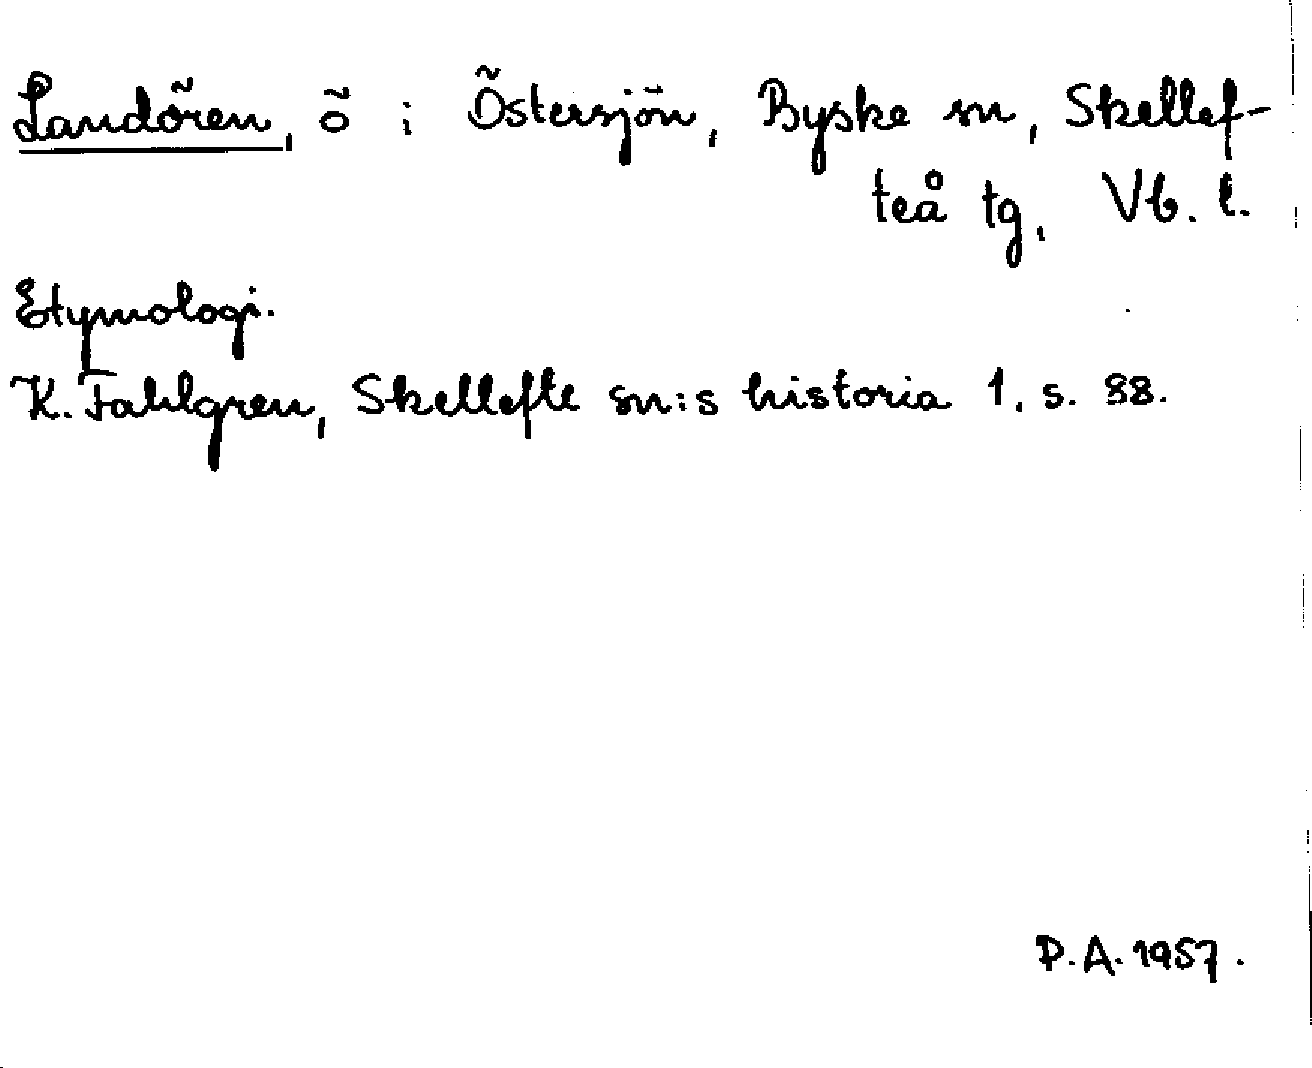 Landören, ö i Östersjön, Byske sn, Skellef-
teå tg, Vb. l.
Etymologi.
K. Fahlgren, Skellefte sn:s historia 1, s. 88.
P.A. 1957.